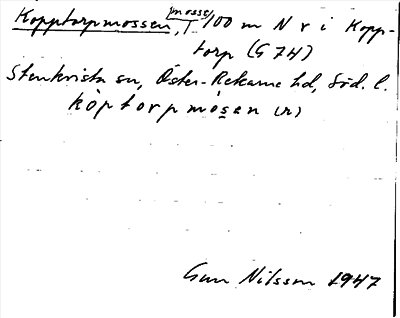 Kopptorpmossen, mosse, 100 m N r i Kopp-
torp (G 74)
Stenkvista sn, Öster-Rekarne hd, Söd. l.
kòptorpmósen (r)
Gun Nilsson 1947